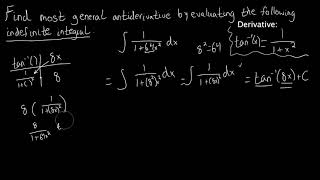 Find most general antiderivative by evaluating the following
indefinite integral.
Derivative:
∫ 1/(1+64x²) dx
8²=64
tan⁻¹(x) = 1/(1+x²)
tan⁻¹( ) | 8x
1/(1+( )²) | 8
= ∫ 1/(1+(8²)x²) dx = ∫ 1/(1+(8x)²) dx = tan⁻¹(8x)+C
8 ( 1/(1+(8x)²) )
8/(1+64x²)